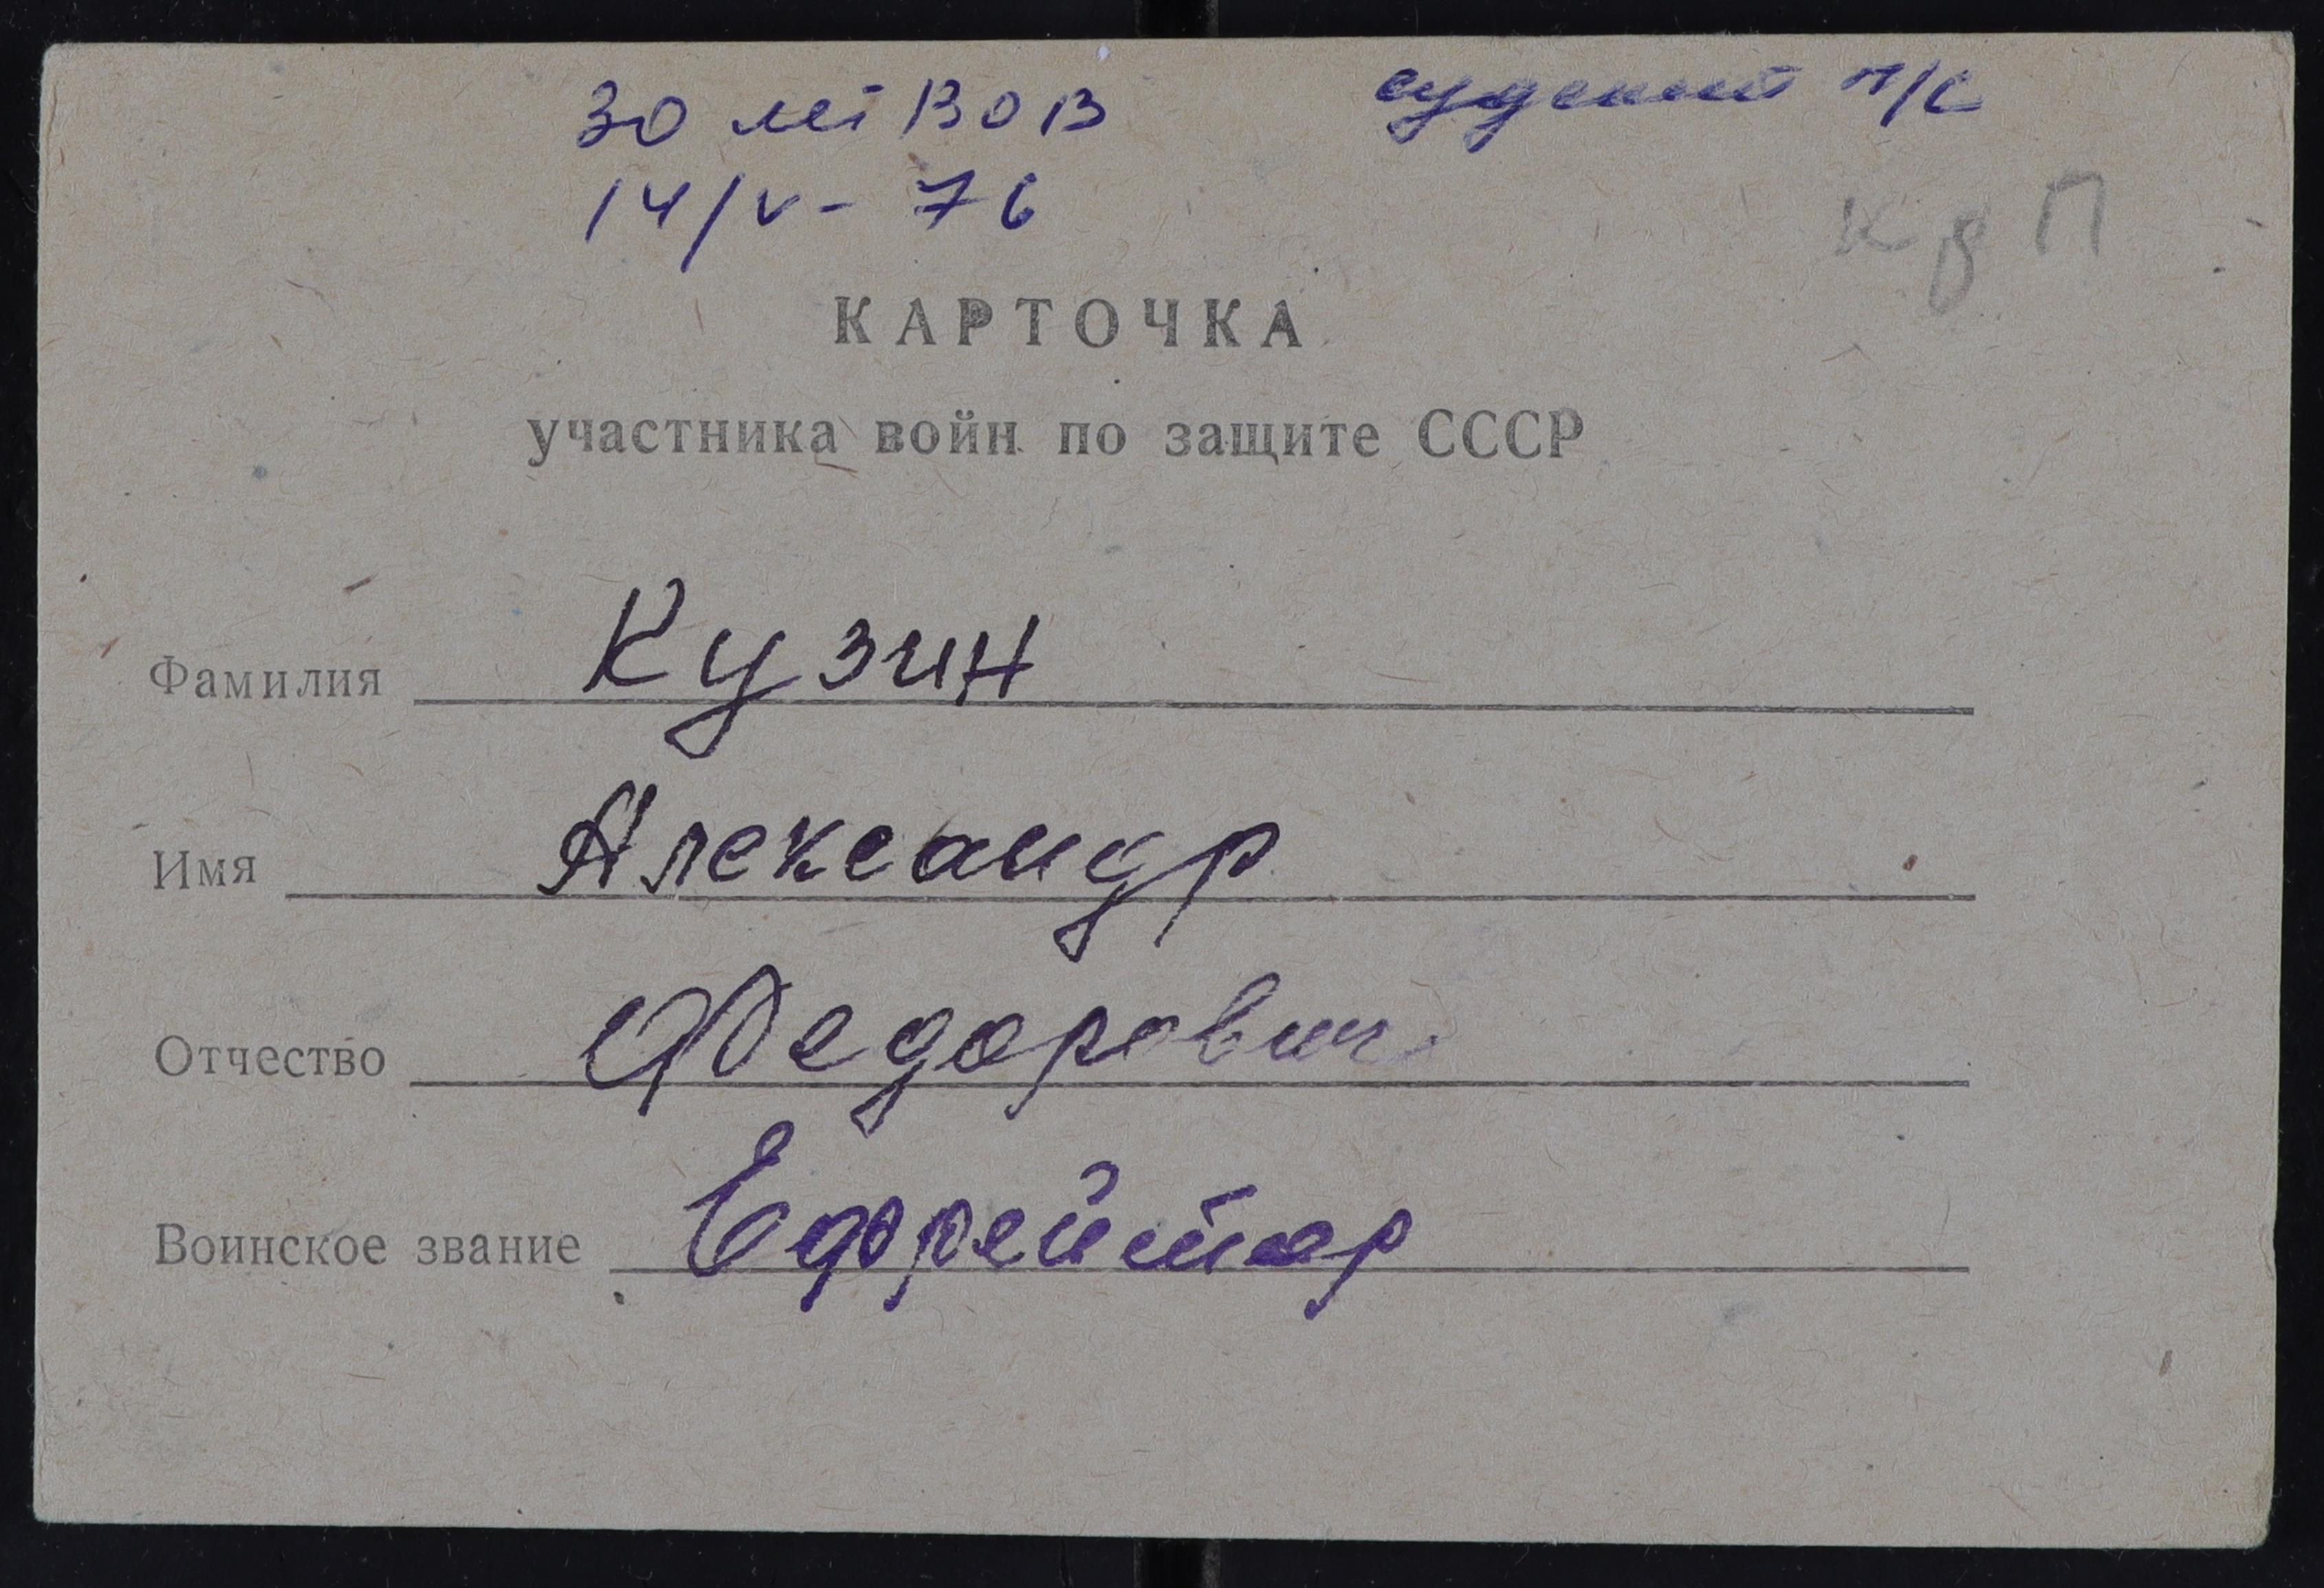 30 лет ВОВ
14/V- 76
судский п/с
К в П
КАРТОЧКА
участника войн по защите СССР
Фамилия Кузин
Имя Александр
Отчество Федорович
Воинское звание Ефрейтор